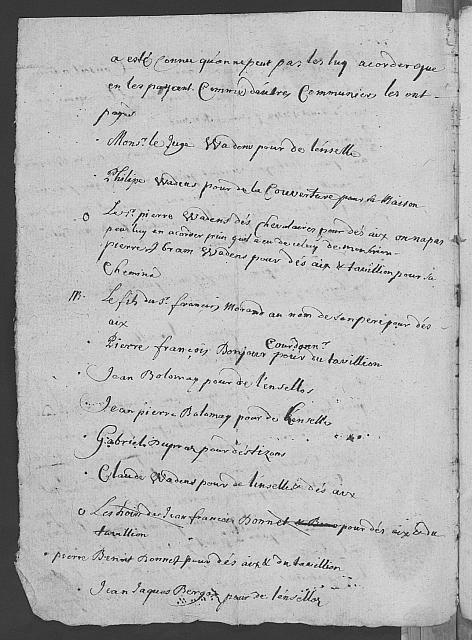 a esté connu qu'on ne peut pas les luy acorder que
en les payeant Comme dautres Communiers les ont
payé
Monsr. le Juge Wadens pour de lenselle
Philipe Wadens pour de la Couverture pour sa Maison
o Le Sr. pierre Wadens dés Chevalaires pour dés aix on na pas
peu luy en acorder
pierre Abram Wadens pour dés aix & tavillion pour sa
Cheminé
Le fils du Sr. francois Morand au nom de son peré pour dés
aix
Courdonnr.
Pierre françois Bonjour pour du tavillion
Jean Bolomay pour de lenselles
Jean pierre Balomay pour de lenselle
Gabriel Dupraz pour destizons
Claude Wadens pour de linselle & dés aix
o Les hoirs de Jean francois Bonnet pour dés aix & du
tavillion
pierre Benoit Bonnet pour dés aix & du tavillion
Jean Jaques pour de lensellez